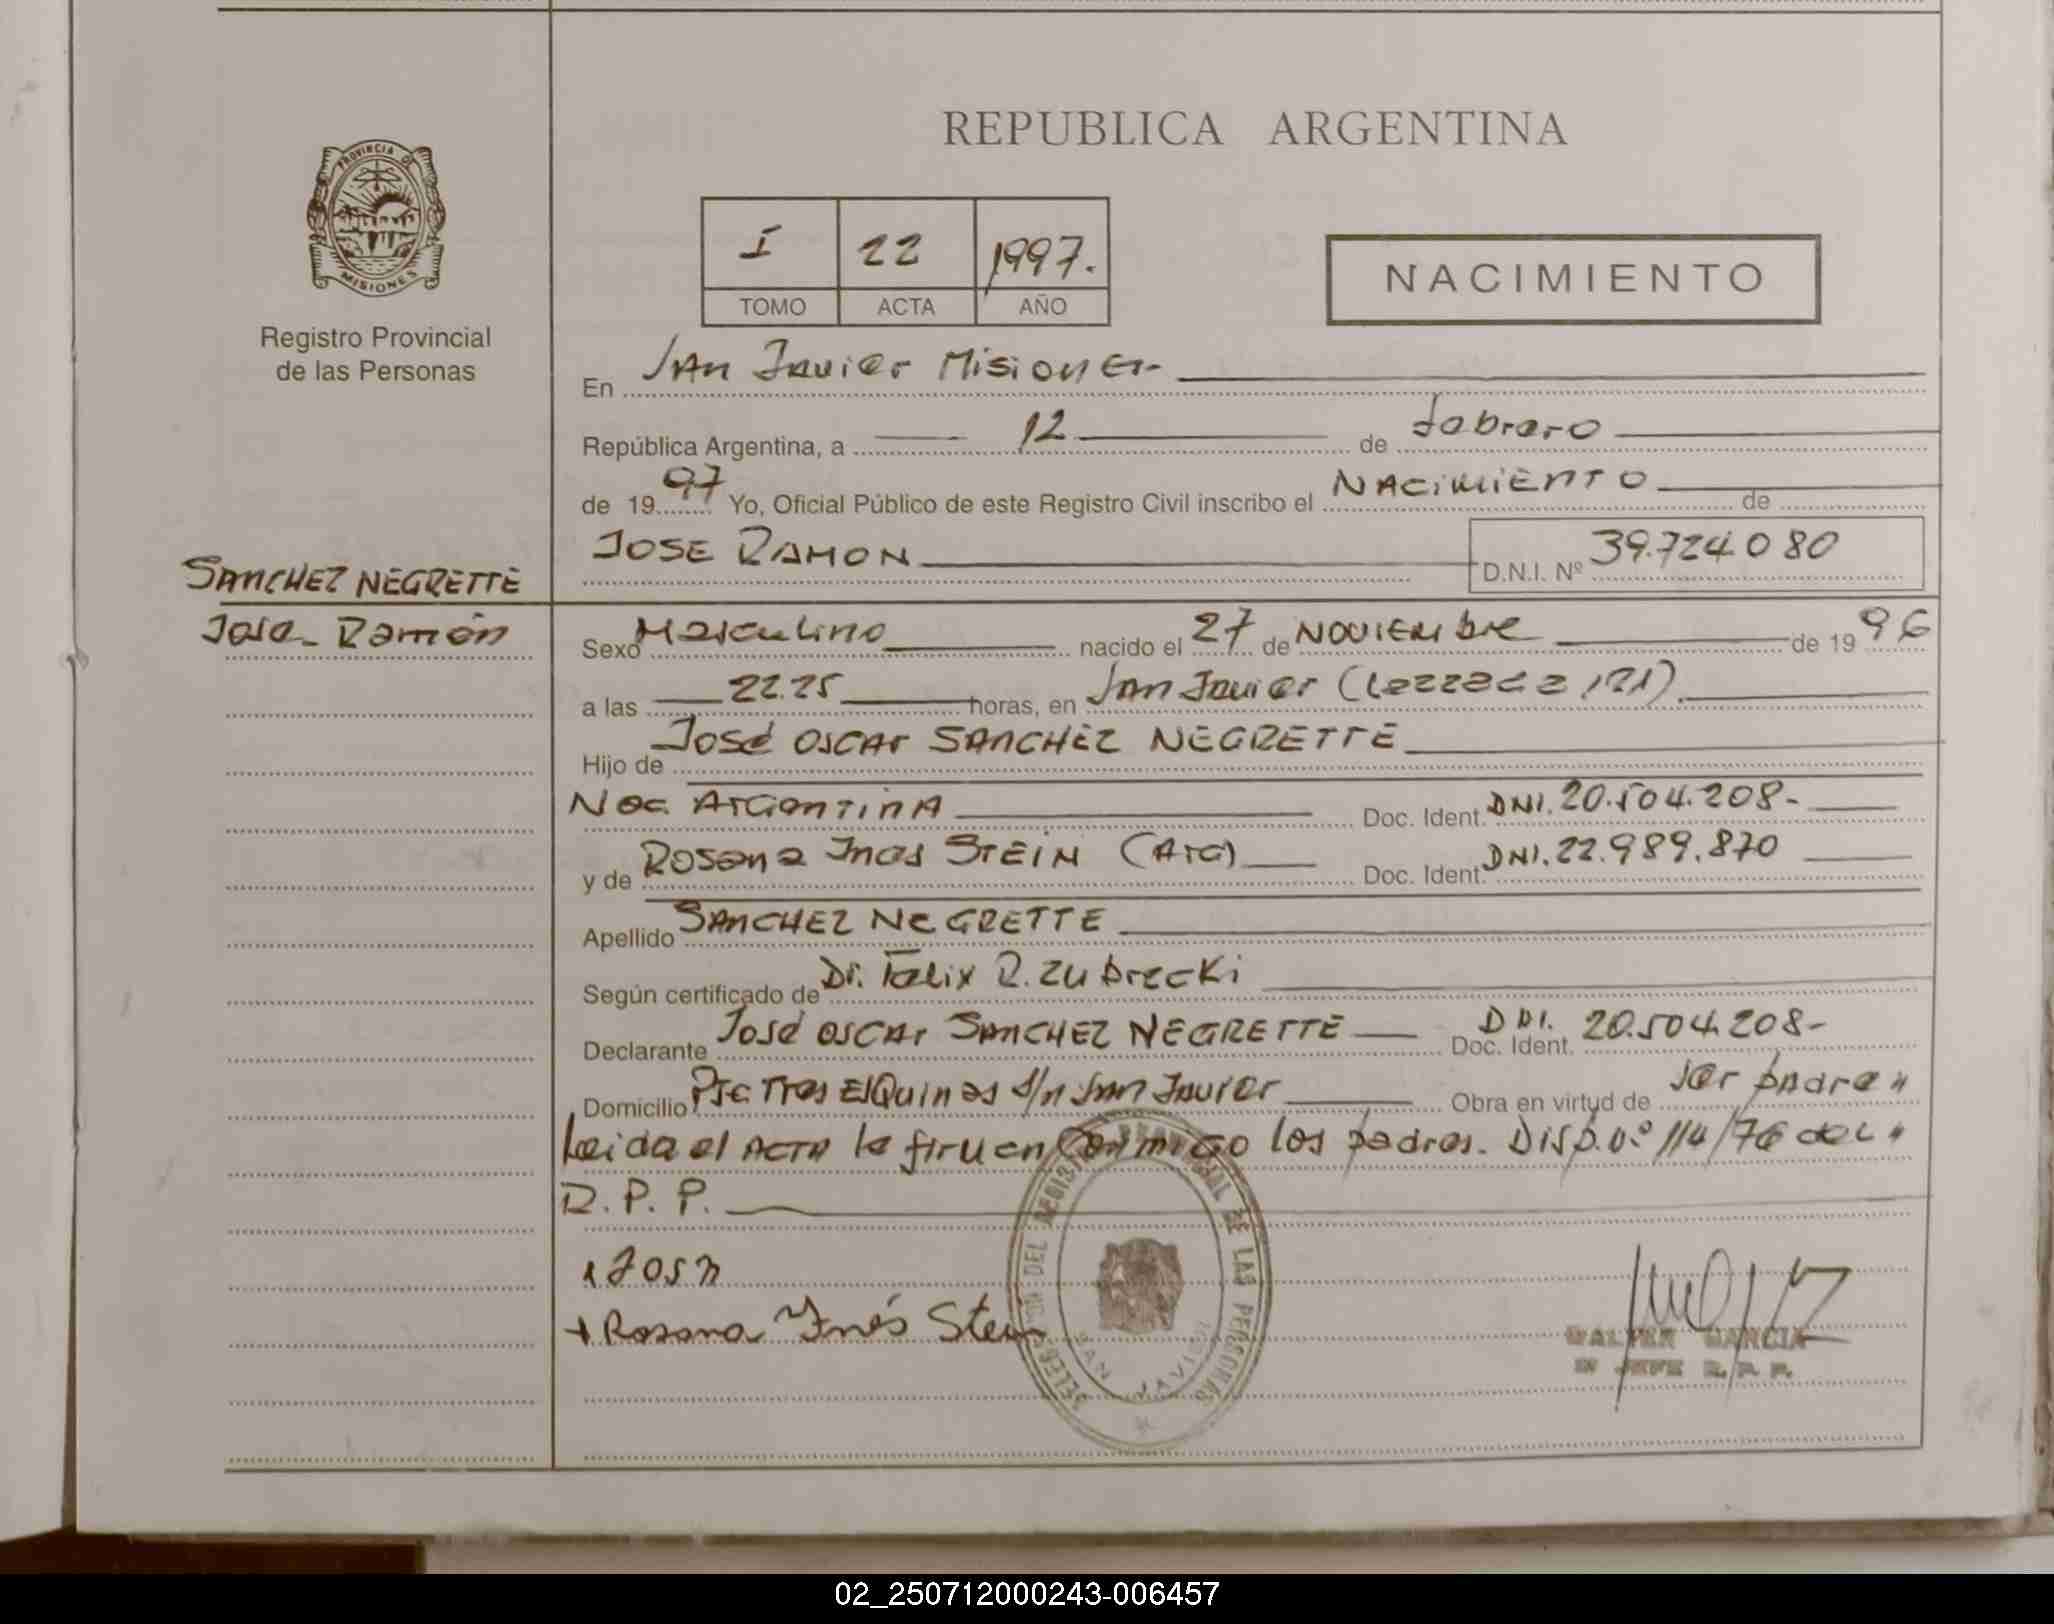 REPUBLICA ARGENTINA
PROVINCIA DE
MISIONES
Registro Provincial
de las Personas
I 22 1997.
TOMO ACTA AÑO
NACIMIENTO
En San Javier Misiones
República Argentina, a 12 de febrero
de 1997 Yo, Oficial Público de este Registro Civil inscribo el NACIMIENTO de
JOSE RAMON D.N.I. Nº 39.724.080
SANCHEZ NEGRETTE
José Ramón
Sexo Masculino nacido el 27 de NOVIEMbre de 1996
a las 22.25 horas, en San Javier (
Hijo de José OSCAr SANCHEZ NEGRETTE
Nac. ArGentinA Doc. Ident. DNI. 20.504.208-
y de Rosana Ines STEIN (ArG) Doc. Ident. DNI. 22.989.870
Apellido SANCHEZ NEGRETTE
Según certificado de Dr. Felix R. Zubrzcki
Declarante José OSCAr SANCHEZ NEGRETTE Doc. Ident. DNI. 20.504.208-
Domicilio Pje Tres EsQuinas S/n San Javier Obra en virtud de ser padre "
Leida el ACTA la firman Conmigo los padres. DISP. Nº 114/76 del "
R.P.P.
x Rosana Inés Stein
DELEGACION DEL REGISTRO PROVINCIAL DE LAS PERSONAS
SAN JAVIER
WALTER GARCIA
JEFE R. P. P.
02_250712000243-006457